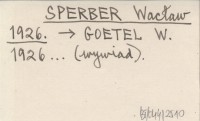 SPERBER Wacław
1926. → GOETEL W.
1926... (wywiad).